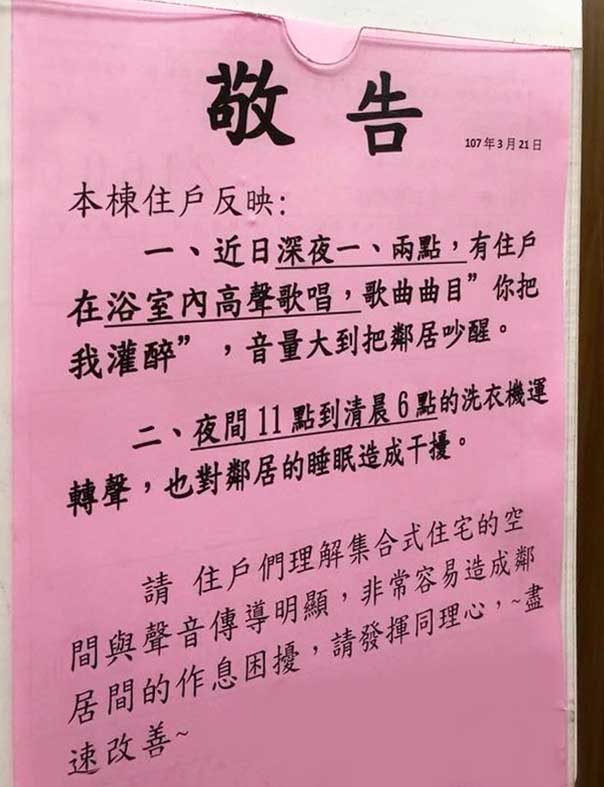 敬告
107年3月21日
本棟住戶反映:
一、近日深夜一、兩點，有住戶
在浴室內高聲歌唱，歌曲曲目”你把
我灌醉”，音量大到把鄰居吵醒。
二、夜間11點到清晨6點的洗衣機運
轉聲，也對鄰居的睡眠造成干擾。
請 住戶們理解集合式住宅的空
間與聲音傳導明顯，非常容易造成鄰
居間的作息困擾，請發揮同理心，~盡
速改善~